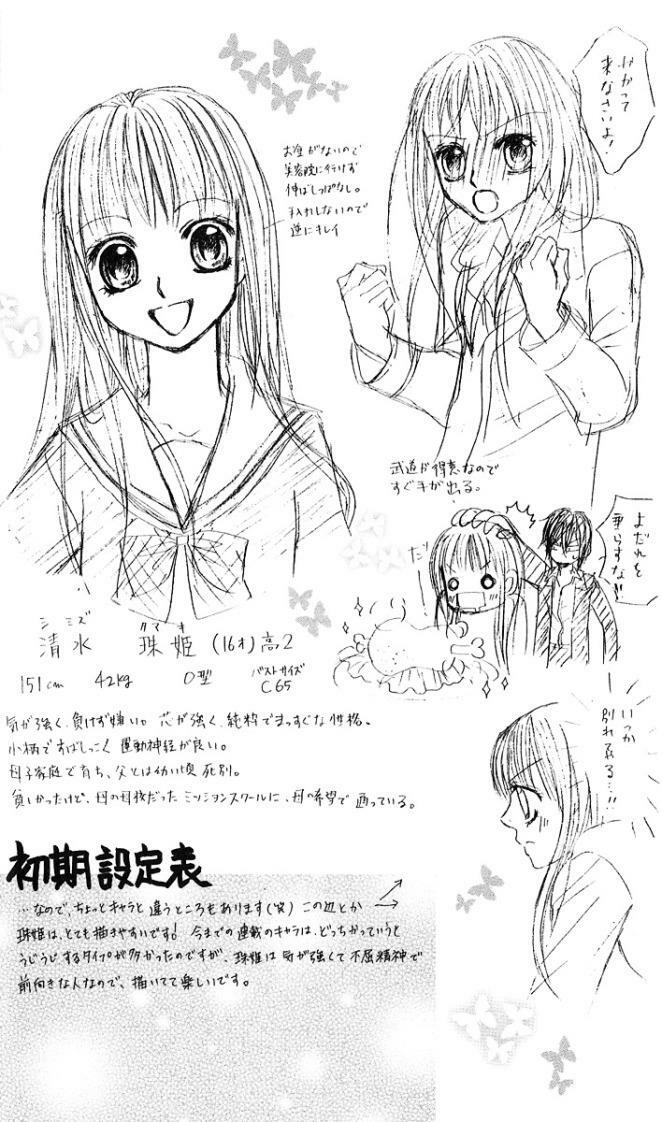 かかって
来なさいよ!
お金がないので
美容院に行けず
伸ばしっぱなし。
手入れしないので
逆にキレイ
武道が得意なので
すぐ手が出る。
よだれを
垂らすな!!
だっ
シミズ タマキ
清水 珠姫 (16才) 高2
151cm 42kg O型 バストサイズ
C65
いつか
別れてやる…!!
気が強く、負けず嫌い。芯が強く、純粋でまっすぐな性格。
小柄ですばしっこく 運動神経が良い。
母子家庭で育ち、父とは幼い頃 死別。
貧しかったけど、母の母校だった ミッションスクールに、母の希望で 通っている。
初期設定表
…なので、ちょっとキャラと 違うところもあります(笑) この辺とか →
珠姫は、とても描きやすいです! 今までの連載のキャラは、どっちかっていうと
うじうじするタイプが多かったのですが、珠姫は 気が強くて不屈精神で
前向きな人なので、描いてて楽しいです。